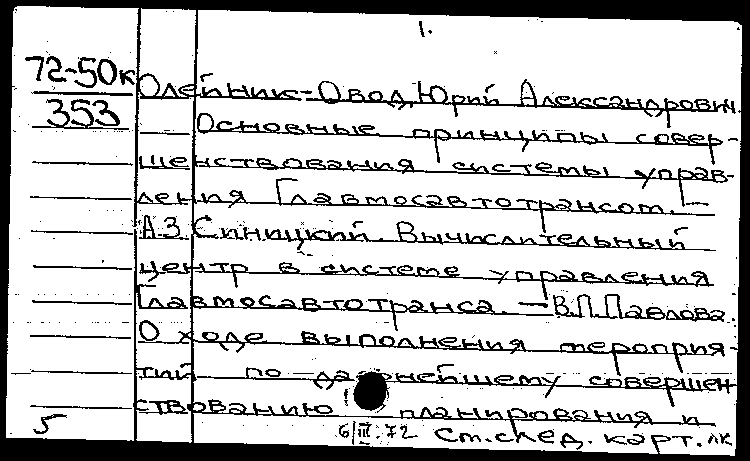 1.
72-50к
353
Олейник-Овод, Юрий Александрович.
Основные принципы совер-
шенствования системы управ-
ления Главмосавтотрансом. —
А.З. Синицкий. Вычислительный
центр в системе управления
Главмосавтотранса. — В.П. Павлова.
О ходе выполнения мероприя-
тий по дальнейшему совершен
ствованию планирования и
5
6/III.72 См. след. карт. лк